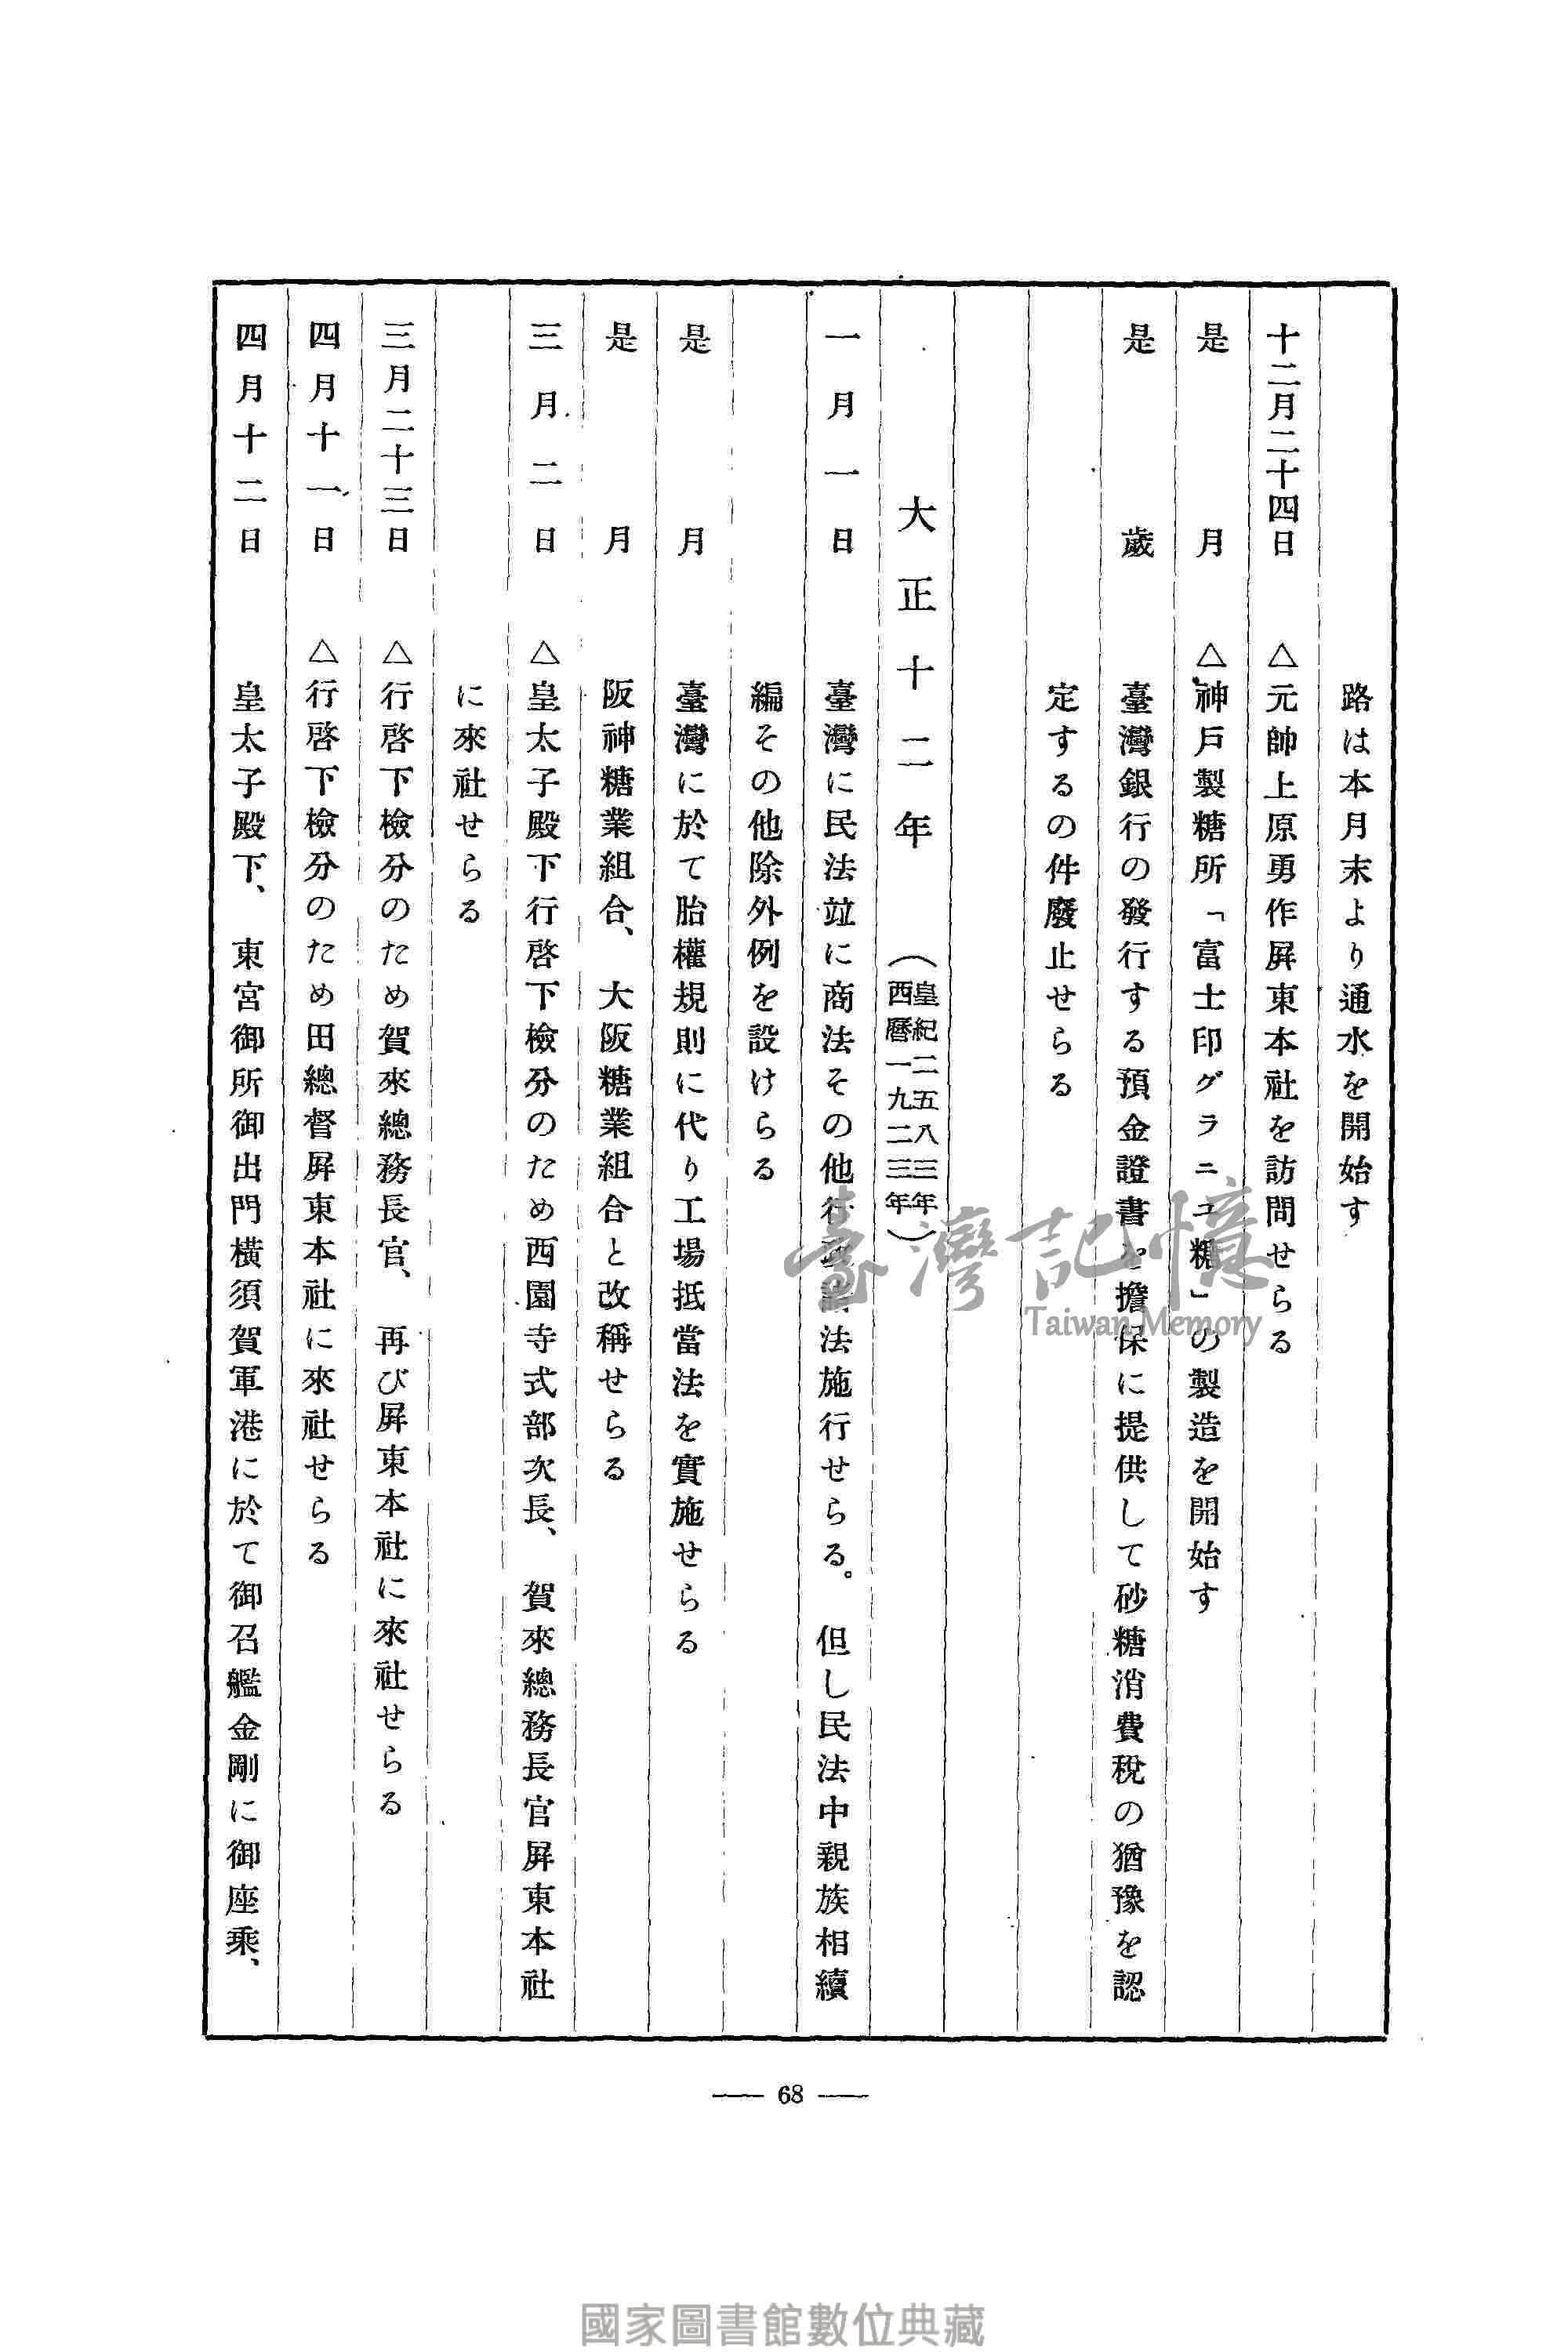 路は本月末より通水を開始す
十二月二十四日 △元帥上原勇作屛東本社を訪問せらる
是月 △神戶製糖所「富士印グラニユ糖」の製造を開始す
是歲 臺灣銀行の發行する預金證書を擔保に提供して砂糖消費稅の猶豫を認
定するの件廢止せらる
大正十二年 (皇紀二五八三年 西曆一九二三年)
一月一日 臺灣に民法竝に商法その他行政諸法施行せらる。但し民法中親族相續
編その他除外例を設けらる
是月 臺灣に於て胎權規則に代り工場抵當法を實施せらる
是月 阪神糖業組合、大阪糖業組合と改稱せらる
三月二日 △皇太子殿下行啓下檢分のため西園寺式部次長、賀來總務長官屛東本社
に來社せらる
三月二十三日 △行啓下檢分のため賀來總務長官、再び屛東本社に來社せらる
四月十一日 △行啓下檢分のため田總督屛東本社に來社せらる
四月十二日 皇太子殿下、東宮御所御出門橫須賀軍港に於て御召艦金剛に御座乘、
— 68 —
臺灣記憶
Taiwan Memory
國家圖書館數位典藏